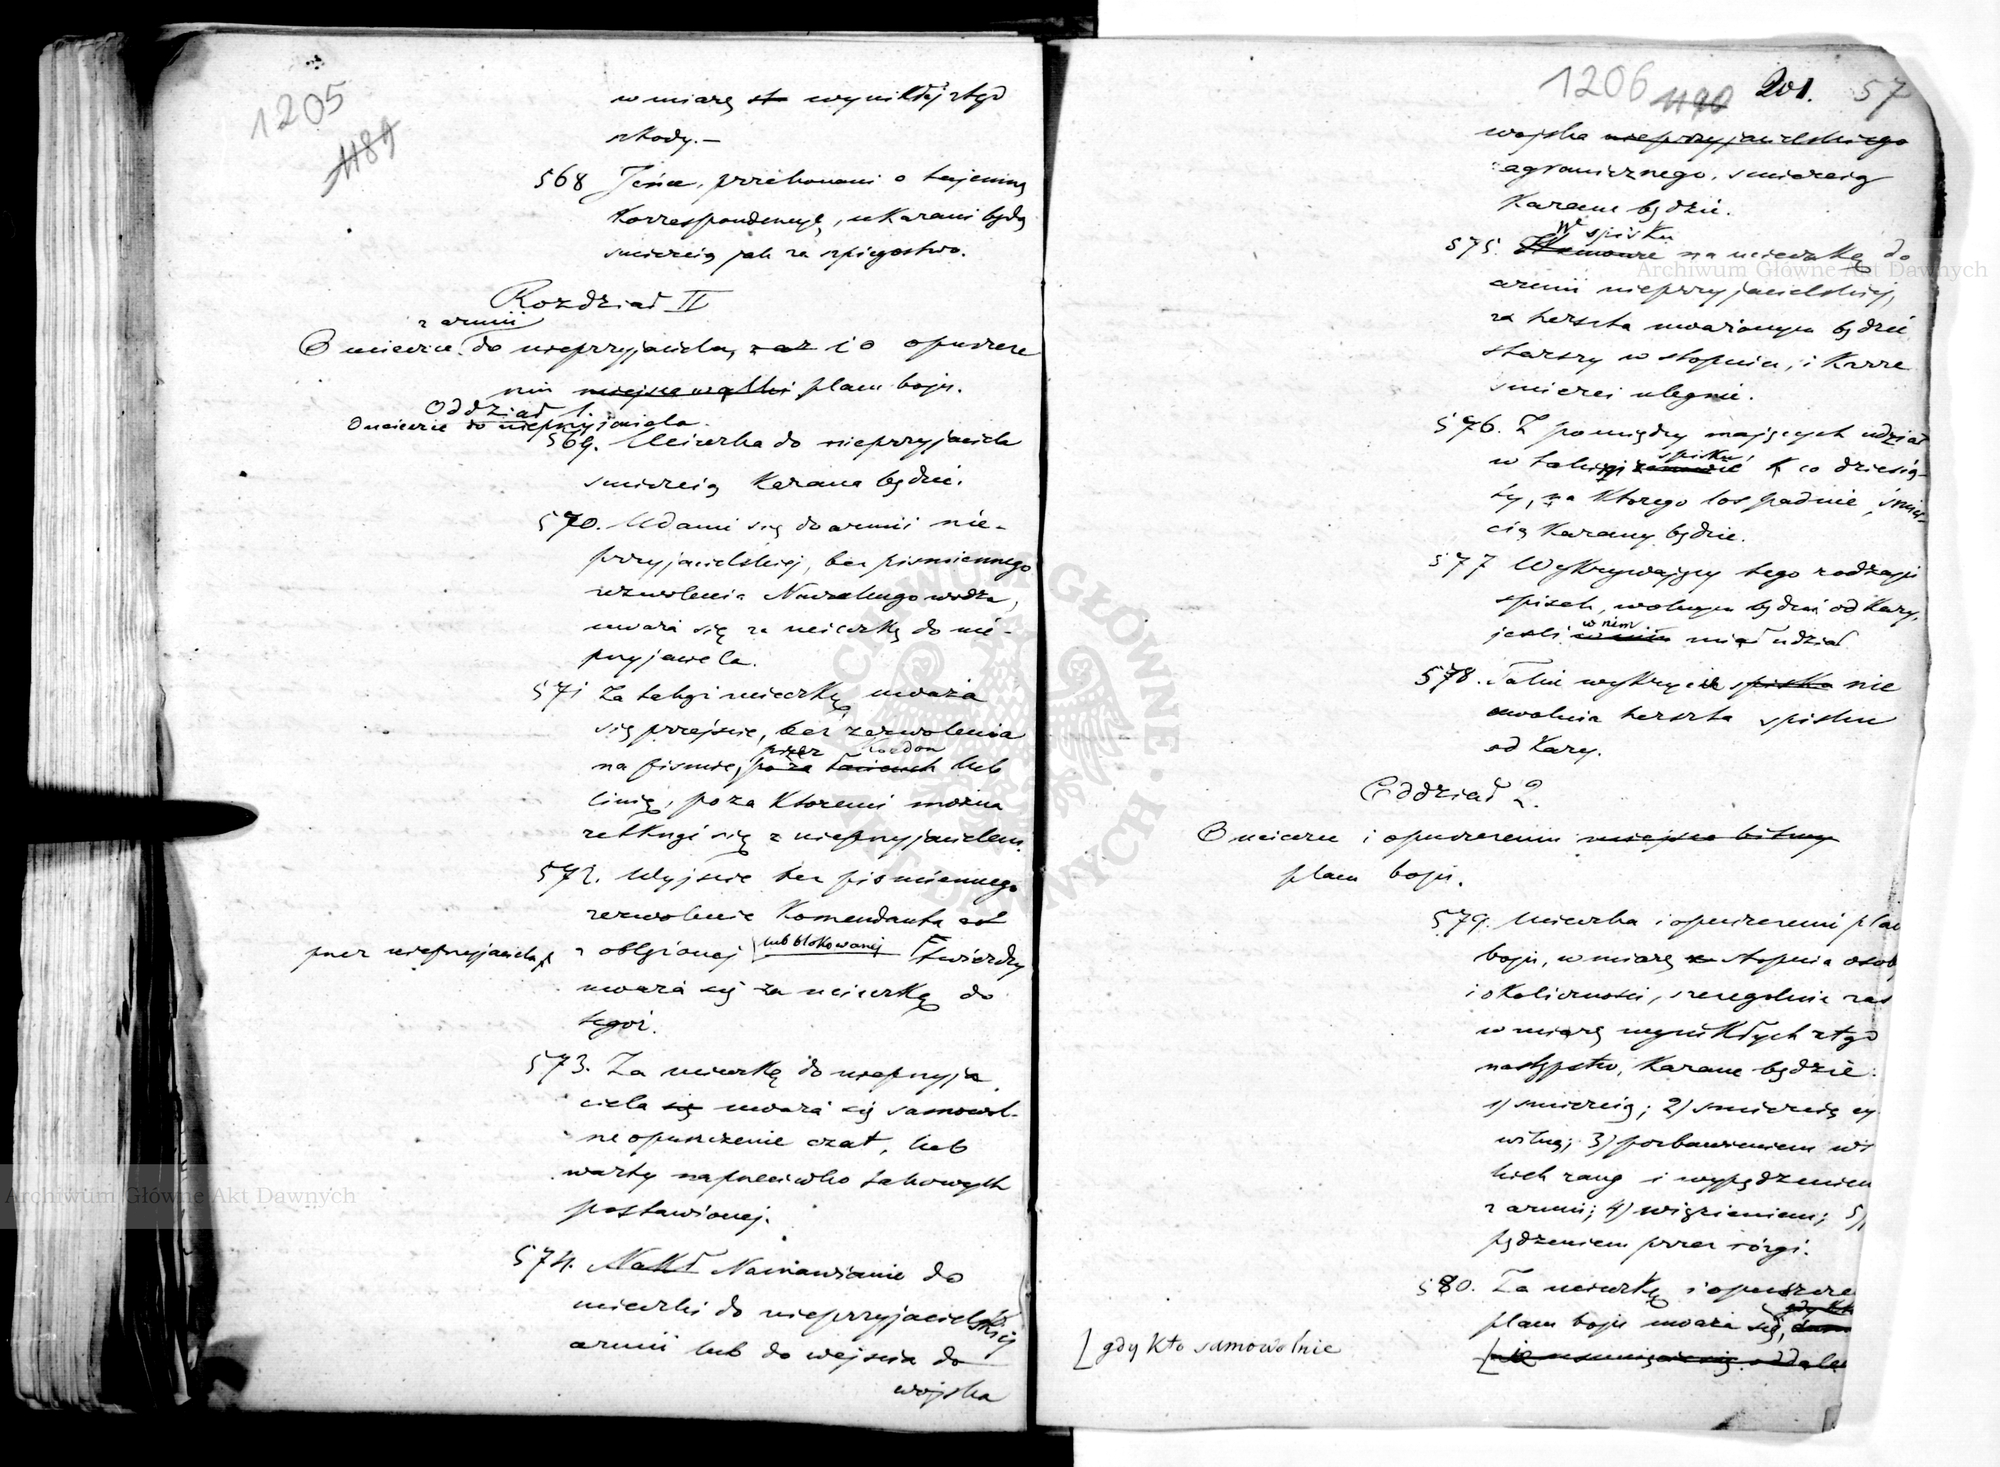 1205
1189
w miarę st wynikłéj ztąd
szkody.—
568 Jeńce, przekonani o tajemną
Korrespondencyą, ukarani będą
śmiercią jak za szpiegostwo.
Rozdział II
z armii
O ucieczce do nieprzyjaciela, zaż i o opuszcze
niu miejsca walki placu boju.
Oddział 1.
O ucieczce do nieprzyjaciela.
569. Ucieczka do nieprzyjaciela
śmiercią karana będzie.
570. Udanie się do armii nie-
przyjacielskiej, bez piśmiennego
zezwolenia Naczelnego wodza,
uważa się za ucieczkę do nie-
przyjaciela.
571 Za takąż ucieczkę uważa
się przejście, bez zezwolenia
na piśmie, poza łańcuch lub
przez Kordon
linię, poza któremi można
zetknąć się z nieprzyjacielem.
572. Wyjście bez piśmiennego
zezwolenia Komendanta
przez nieprzyjaciela z oblężonej lub blokowanej twierdzy
uważa się za ucieczkę do
tegoż.
573. Za ucieczkę do nieprzyja
ciela się uważa się samowol-
ne opuszczenie czat, lub
warty naprzeciwko takowych
postawionej.
574. Nakł Namawianie do
ucieczki do nieprzyjacielskiej
armii lub do wejścia do
wojska
1206 1190 201. 57
wojska nieprzyjacielskiego
zagranicznego, śmiercią
Karane będzie.
W spisku
575. na ucieczkę do
armii nieprzyjacielskiej,
za herszta uważanym będzie
starszy w stopniu, i Karze
śmierci ulegnie.
576. Z pomiędzy mających udział
spisku
w takiej zmowie co dziesią-
ty, na którego los padnie, śmier-
cią Karany będzie.
577 Wykrywający tego rodzaju
spisek, wolnym będzie od Kary,
w nim
jeśli miał udział
578. Takie wykrycie spisku nie
uwolnia herszta spisku
od Kary.
Oddział 2.
O ucieczce i opuszczeniu miejsca bitwy
placu boju.
579. Ucieczka i opuszczenie plac
boju, w miarę stopnia osob
i okoliczności, szczególnie zaś
w miarę wynikłych ztąd
następstw, Karane będzie:
1) śmiercią; 2) śmiercią cy
wilną; 3) pozbawieniem w
kich rang i wypędzeniem
z armii; 4) więzieniem; 5)
pędzeniem przez rózgi.
580. Za ucieczkę i opuszcze
placu boju uważa się,
nie usunięcie się oddale
gdy kto samowolnie
Archiwum Główne Akt Dawnych
Archiwum Główne Akt Dawnych
ARCHIWUM GŁÓWNE AKT DAWNYCH